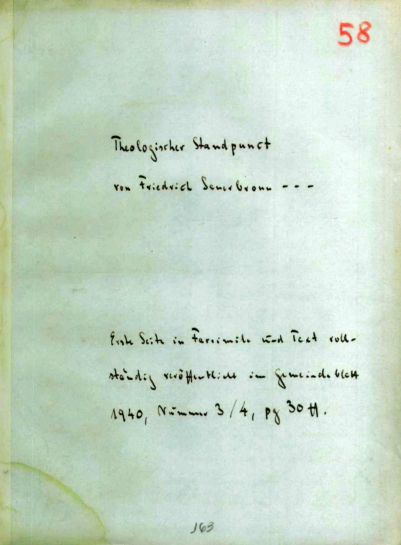 58
Theologischer Standpunct
von Friedrich Sauerbronn ---
Erste Seite in Facsimile und Text voll-
ständig veröffentlicht im Gemeindeblatt
1940, Nummer 3/4, pg 30 ff.
163